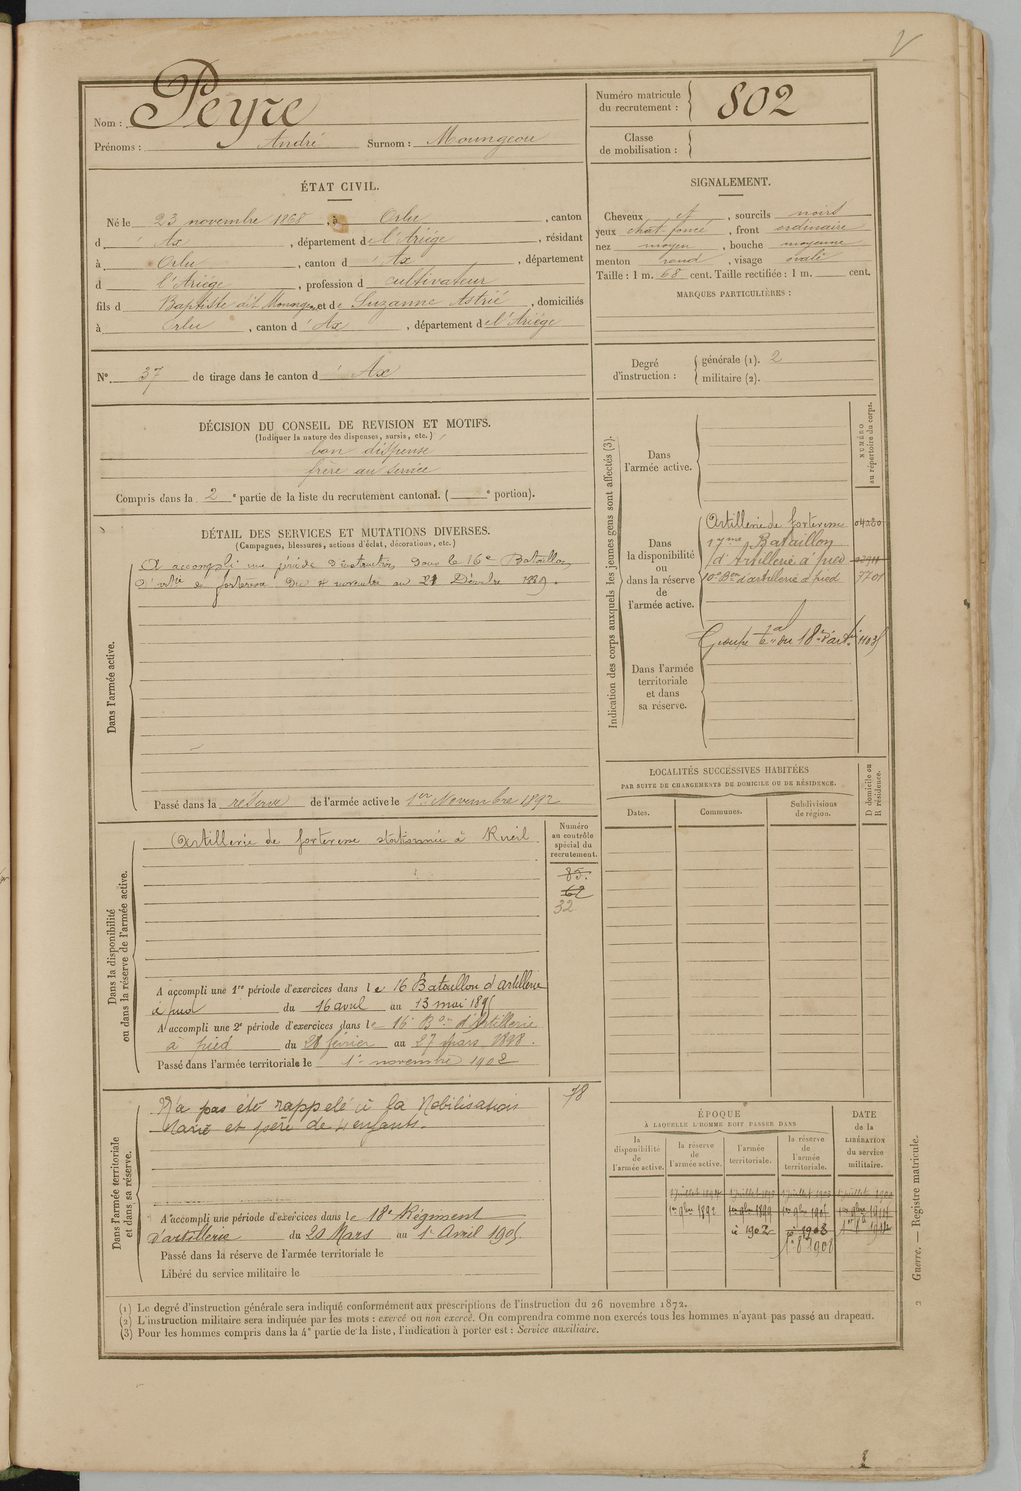 V
Nom : Peyre
Prénoms : André Surnom : Moungeou
Numéro matricule
du recrutement : 802
Classe
de mobilisation :
ÉTAT CIVIL.
Né le 23 novembre 1868, à Orlu, canton
d'Ax, département de l'Ariège, résidant
à Orlu, canton d'Ax, département
d l'Ariège, profession de cultivateur
fils d Baptiste dit Moungeou et de Suzanne Astrié, domiciliés
à Orlu, canton d'Ax, département de l'Ariège
N° 37 de tirage dans le canton d'Ax
SIGNALEMENT.
Cheveux et, sourcils noirs
yeux chat. foncé, front ordinaire
nez moyen, bouche moyenne
menton rond, visage ovale
Taille : 1 m. 68 cent. Taille rectifiée : 1 m. cent.
MARQUES PARTICULIÈRES :
Degré
d'instruction :
générale (1). 2
militaire (2).
DÉCISION DU CONSEIL DE REVISION ET MOTIFS.
(Indiquer la nature des dispenses, sursis, etc.)
bon dispense
frère au service
Compris dans la 2e partie de la liste du recrutement cantonal. ( e portion).
DÉTAIL DES SERVICES ET MUTATIONS DIVERSES.
(Campagnes, blessures, actions d'éclat, décorations, etc.)
Dans l'armée active.
A accompli une période d'instruction dans le 16e Bataillon
d'artie de forteresse du 4 novembre au 21 Décembre 1889.
Passé dans la réserve de l'armée active le 1er Novembre 1892
Indication des corps auxquels les jeunes gens sont affectés (3).
NUMÉRO
au répertoire du corps.
Dans
l'armée active.
Dans
la disponibilité
ou
dans la réserve
de
l'armée active.
Artillerie de forteresse
17me Bataillon
d'Artillerie à pied
10e Bon d'artillerie à pied 9701
Groupe tal du 18e d'artie
Dans l'armée
territoriale
et dans
sa réserve.
LOCALITÉS SUCCESSIVES HABITÉES
PAR SUITE DE CHANGEMENTS DE DOMICILE OU DE RÉSIDENCE.
Dates. Communes. Subdivisions
de région.
D domicile ou
R résidence.
Dans la disponibilité
ou dans la réserve de l'armée active.
Artillerie de forteresse stationnée à Rueil
Numéro
au contrôle
spécial du
recrutement.
85.
62
32
A accompli une 1re période d'exercices dans le 16 Bataillon d'artillerie
à pied du 16 avril au 13 mai 1895
A accompli une 2e période d'exercices dans le 16e Bon d'Artillerie
à pied du 28 février au 27 mars 1898.
Passé dans l'armée territoriale le 1er novembre 1902
Dans l'armée territoriale
et dans sa réserve.
78
N'a pas été rappelé à la Mobilisation
Marié et père de 4 enfants.
A accompli une période d'exercices dans le 18e Régiment
d'artillerie du 20 Mars au 1er Avril 1905
Passé dans la réserve de l'armée territoriale le
Libéré du service militaire le
ÉPOQUE
À LAQUELLE L'HOMME DOIT PASSER DANS
DATE
de la
LIBÉRATION
du service
militaire.
la
disponibilité
de
l'armée active.
la réserve
de
l'armée active.
l'armée
territoriale.
la réserve
de
l'armée
territoriale.
1er 9bre 1892
à 1902
1908
Guerre. — Registre matricule.
2
(1) Le degré d'instruction générale sera indiqué conformément aux prescriptions de l'instruction du 26 novembre 1872.
(2) L'instruction militaire sera indiquée par les mots : exercé ou non exercé. On comprendra comme non exercés tous les hommes n'ayant pas passé au drapeau.
(3) Pour les hommes compris dans la 4e partie de la liste, l'indication à porter est : Service auxiliaire.